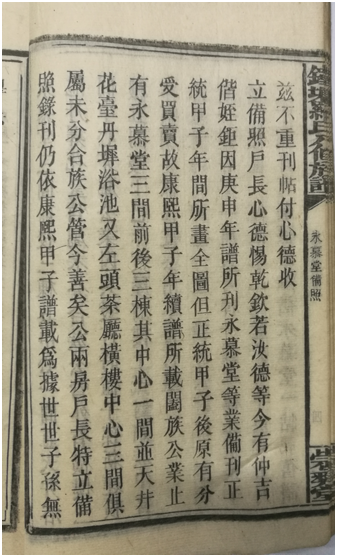 玆不重刊帖付心德收
立備照戶長心德惕乾欽若汝德等今有仲吉
偕姪鉅因庚申年譜所刊永慕堂等業備刊正
統甲子年間所畫全圖但正統甲子後原有分
愛買賣故康熙甲子年續譜所載闔族公業止
有永慕堂三間前後三棟其中心一間並天井
花臺丹墀浴池又左頭茶廳橫樓中心三間俱
屬未分合族公管今善矣公兩房戶長特立備
照錄刊仍依康熙甲子譜載爲據世世子孫無
羅氏九修族譜
永慕堂備照